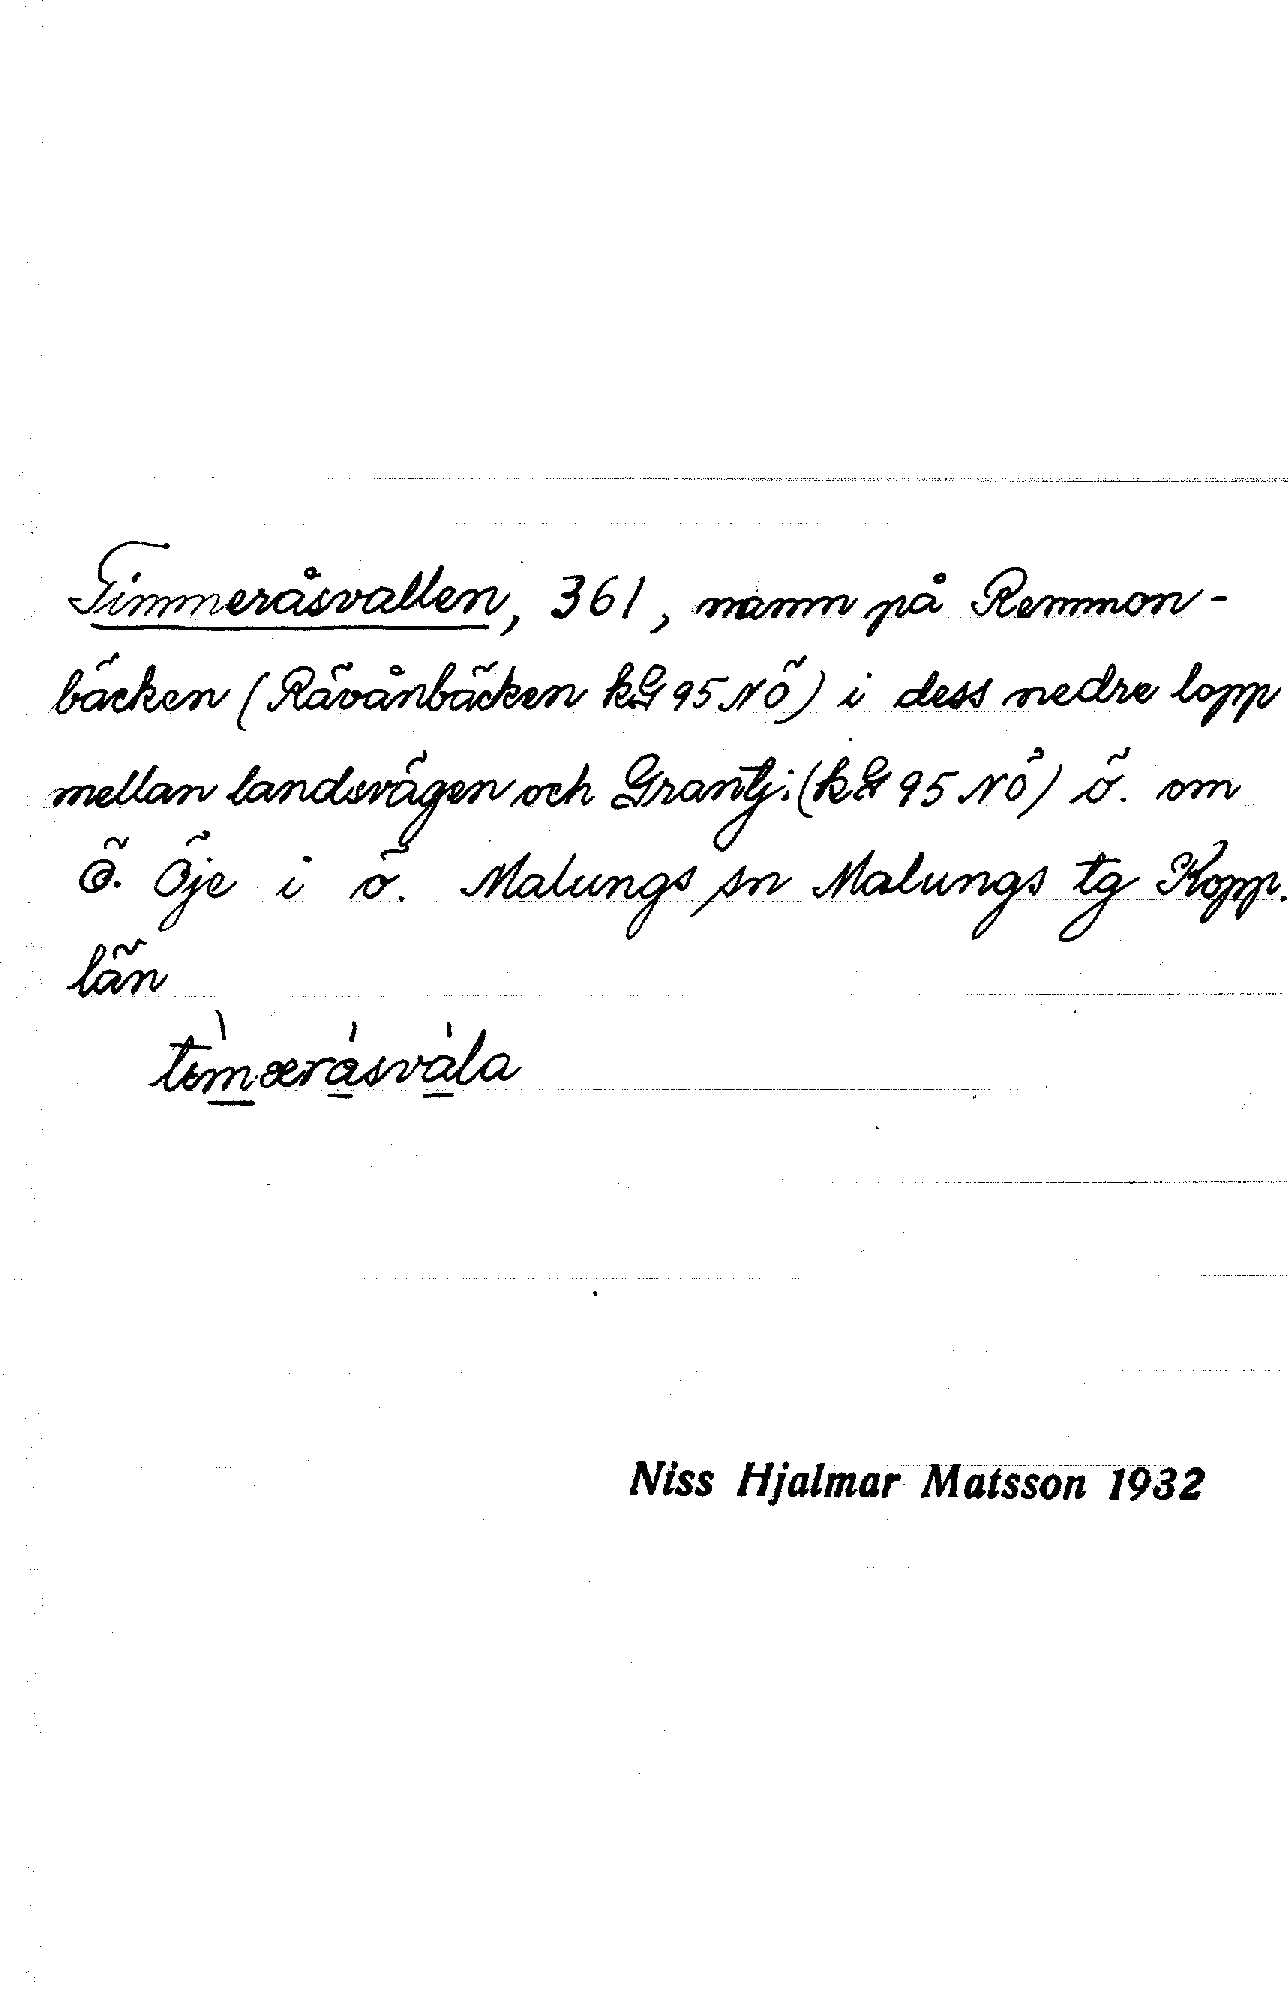 Timmeråsvallen, 361, namn på Remmon-
bäcken (Rävånbäcken kG 95 NÖ) i dess nedre lopp
mellan landsvägen och Grantj: (kG 95 NÖ) ö. om
Ö. Öje i ö. Malungs sn Malungs tg Kopp.
län
timæråsvála
Niss Hjalmar Matsson 1932